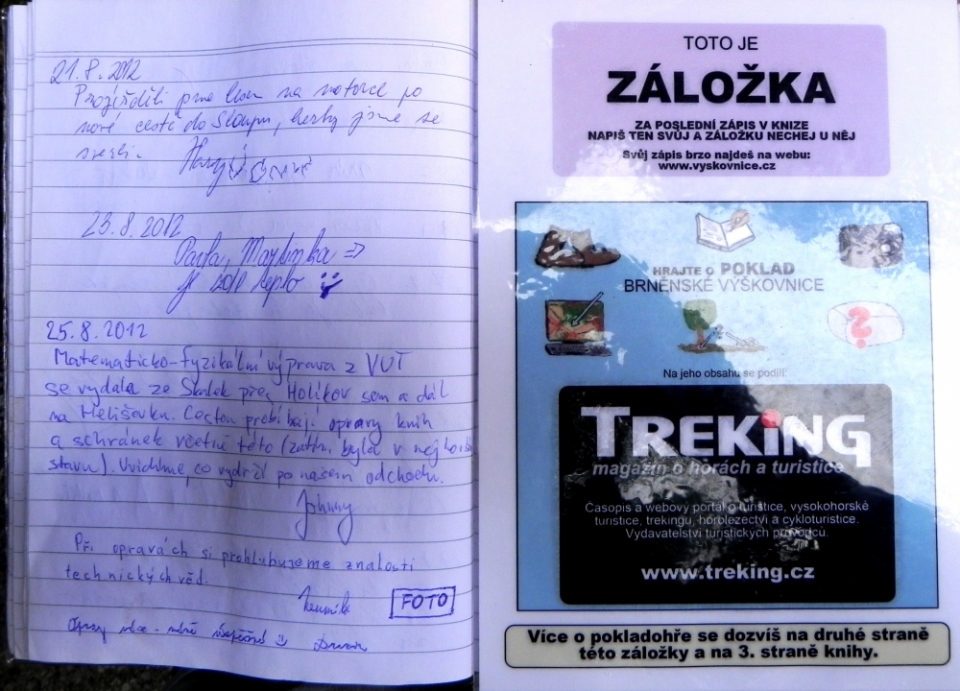 21.8.2012
Projížděli jsme na motorce po
nové cestě do Sloupu, jsme se
svezli.
23.8.2012
Pavla, Martinka =>
je zde teplo
25.8.2012
Matematicko-fyzikální výprava z VUT
se vydala ze Skalek přes Holíkov sem a dál
na Melišovku. Cestou probíhají opravy knih
a schránek včetně této (zatím byla v nejhorším
stavu). Uvidíme, co vydrží po našem odchodu.
Johnny
Při opravách si prohlubujeme znalosti
technických věd.
FOTO
Opravy více - méně úspěšné
TOTO JE
ZÁLOŽKA
ZA POSLEDNÍ ZÁPIS V KNIZE
NAPIŠ TEN SVŮJ A ZÁLOŽKU NECHEJ U NĚJ
Svůj zápis brzo najdeš na webu:
www.vyskovnice.cz
HRAJTE O POKLAD
BRNĚNSKÉ VÝŠKOVNICE
?
Na jeho obsahu se podílí:
TREKiNG
magazín o horách a turistice
Časopis a webový portál o turistice, vysokohorské
turistice, trekingu, horolezectví a cykloturistice.
Vydavatelství turistických průvodců.
www.treking.cz
Více o pokladohře se dozvíš na druhé straně
této záložky a na 3. straně knihy.